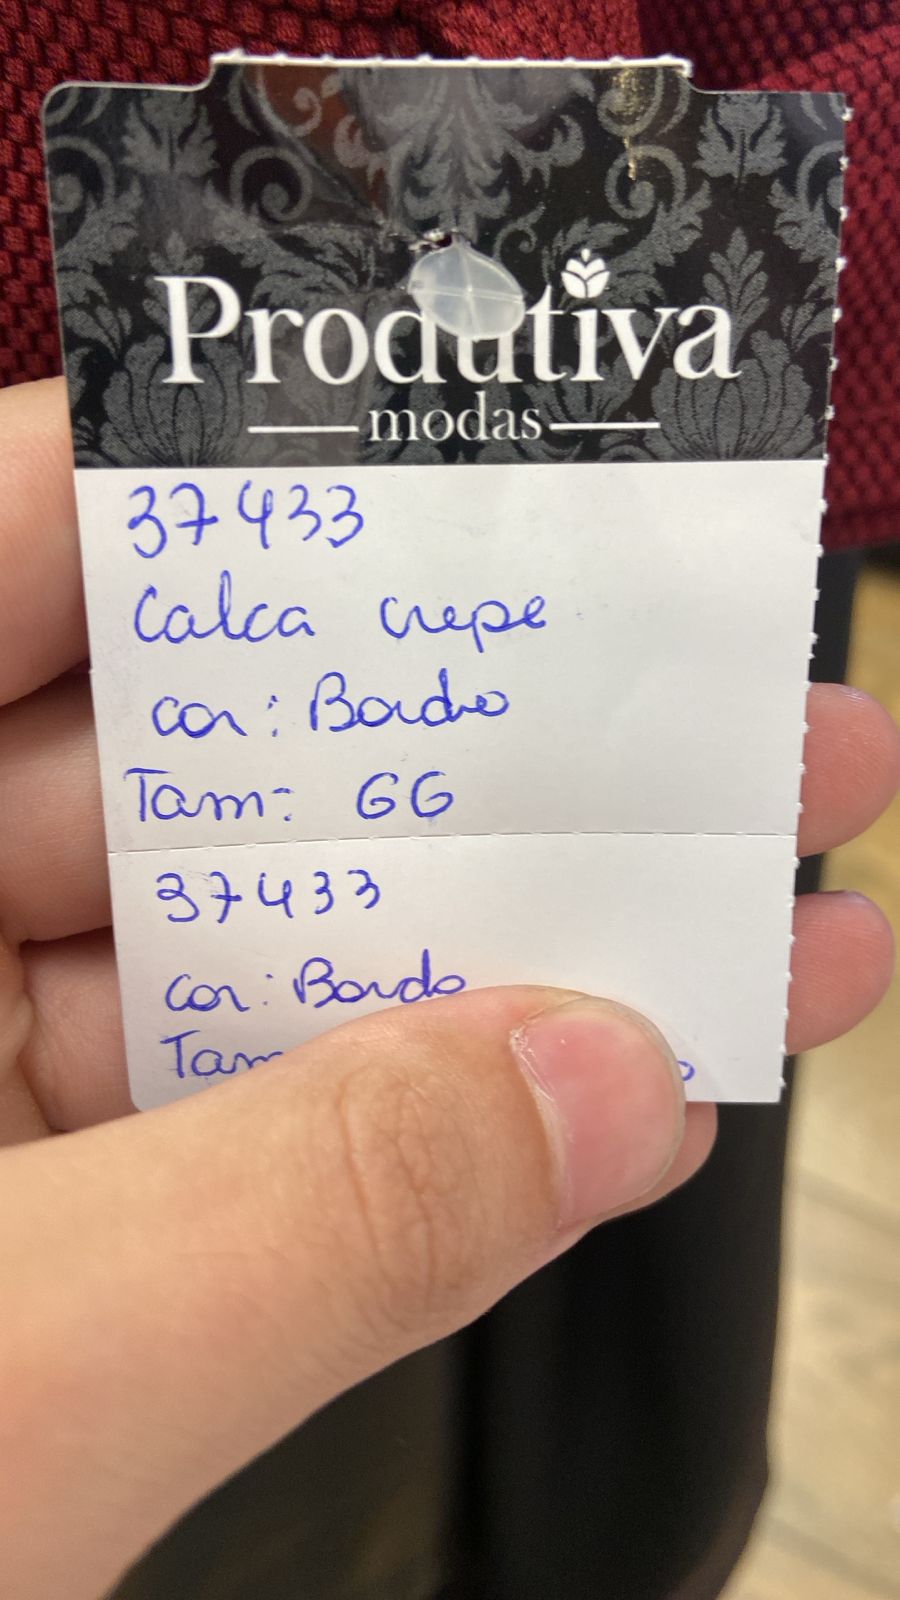 Produtiva
modas
37433
Calca crepe
cor: Bordo
Tam: GG
37433
cor: Bordo
Tam